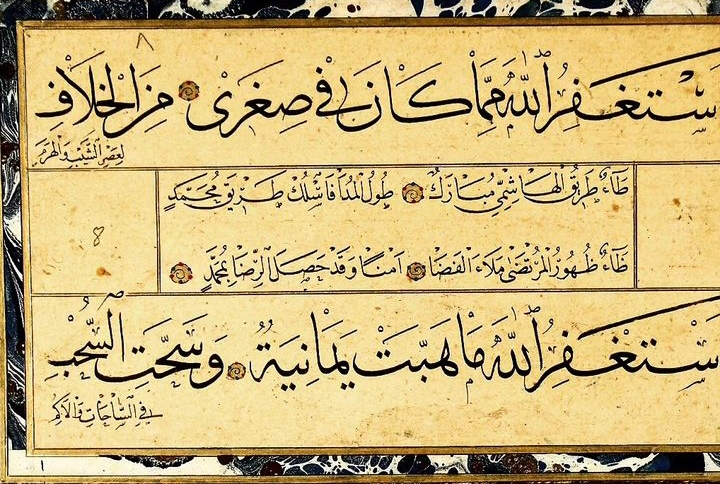 ٨
سْتَغْفِرُ اللهَ مِمَّا كَانَ فِي صِغَرِى مِنَ الْخِلَافِ
لِعَصْرِ الشَّيْبِ وَالْهَرَمِ
طَاءٌ طَرِيقُ الْهَاشِمِيِّ مُبَارَكٌ طُولُ الْمَدَا فَاسْلُكْ طَرِيقَ مُحَمَّدٍ
ظَاءٌ ظُهُورُ الْمُرْتَضَى مَلَاءَ الْفَضَا اَمْنًا وَقَدْ حَصَلَ الرِّضَا بِمُحَمَّدٍ
سْتَغْفِرُ اللهَ مَا هَبَّتْ يَمَانِيَةٌ وَسَحَّتِ السُّحْبُ
فِي السَّاحَاتِ وَالْاَكَمِ